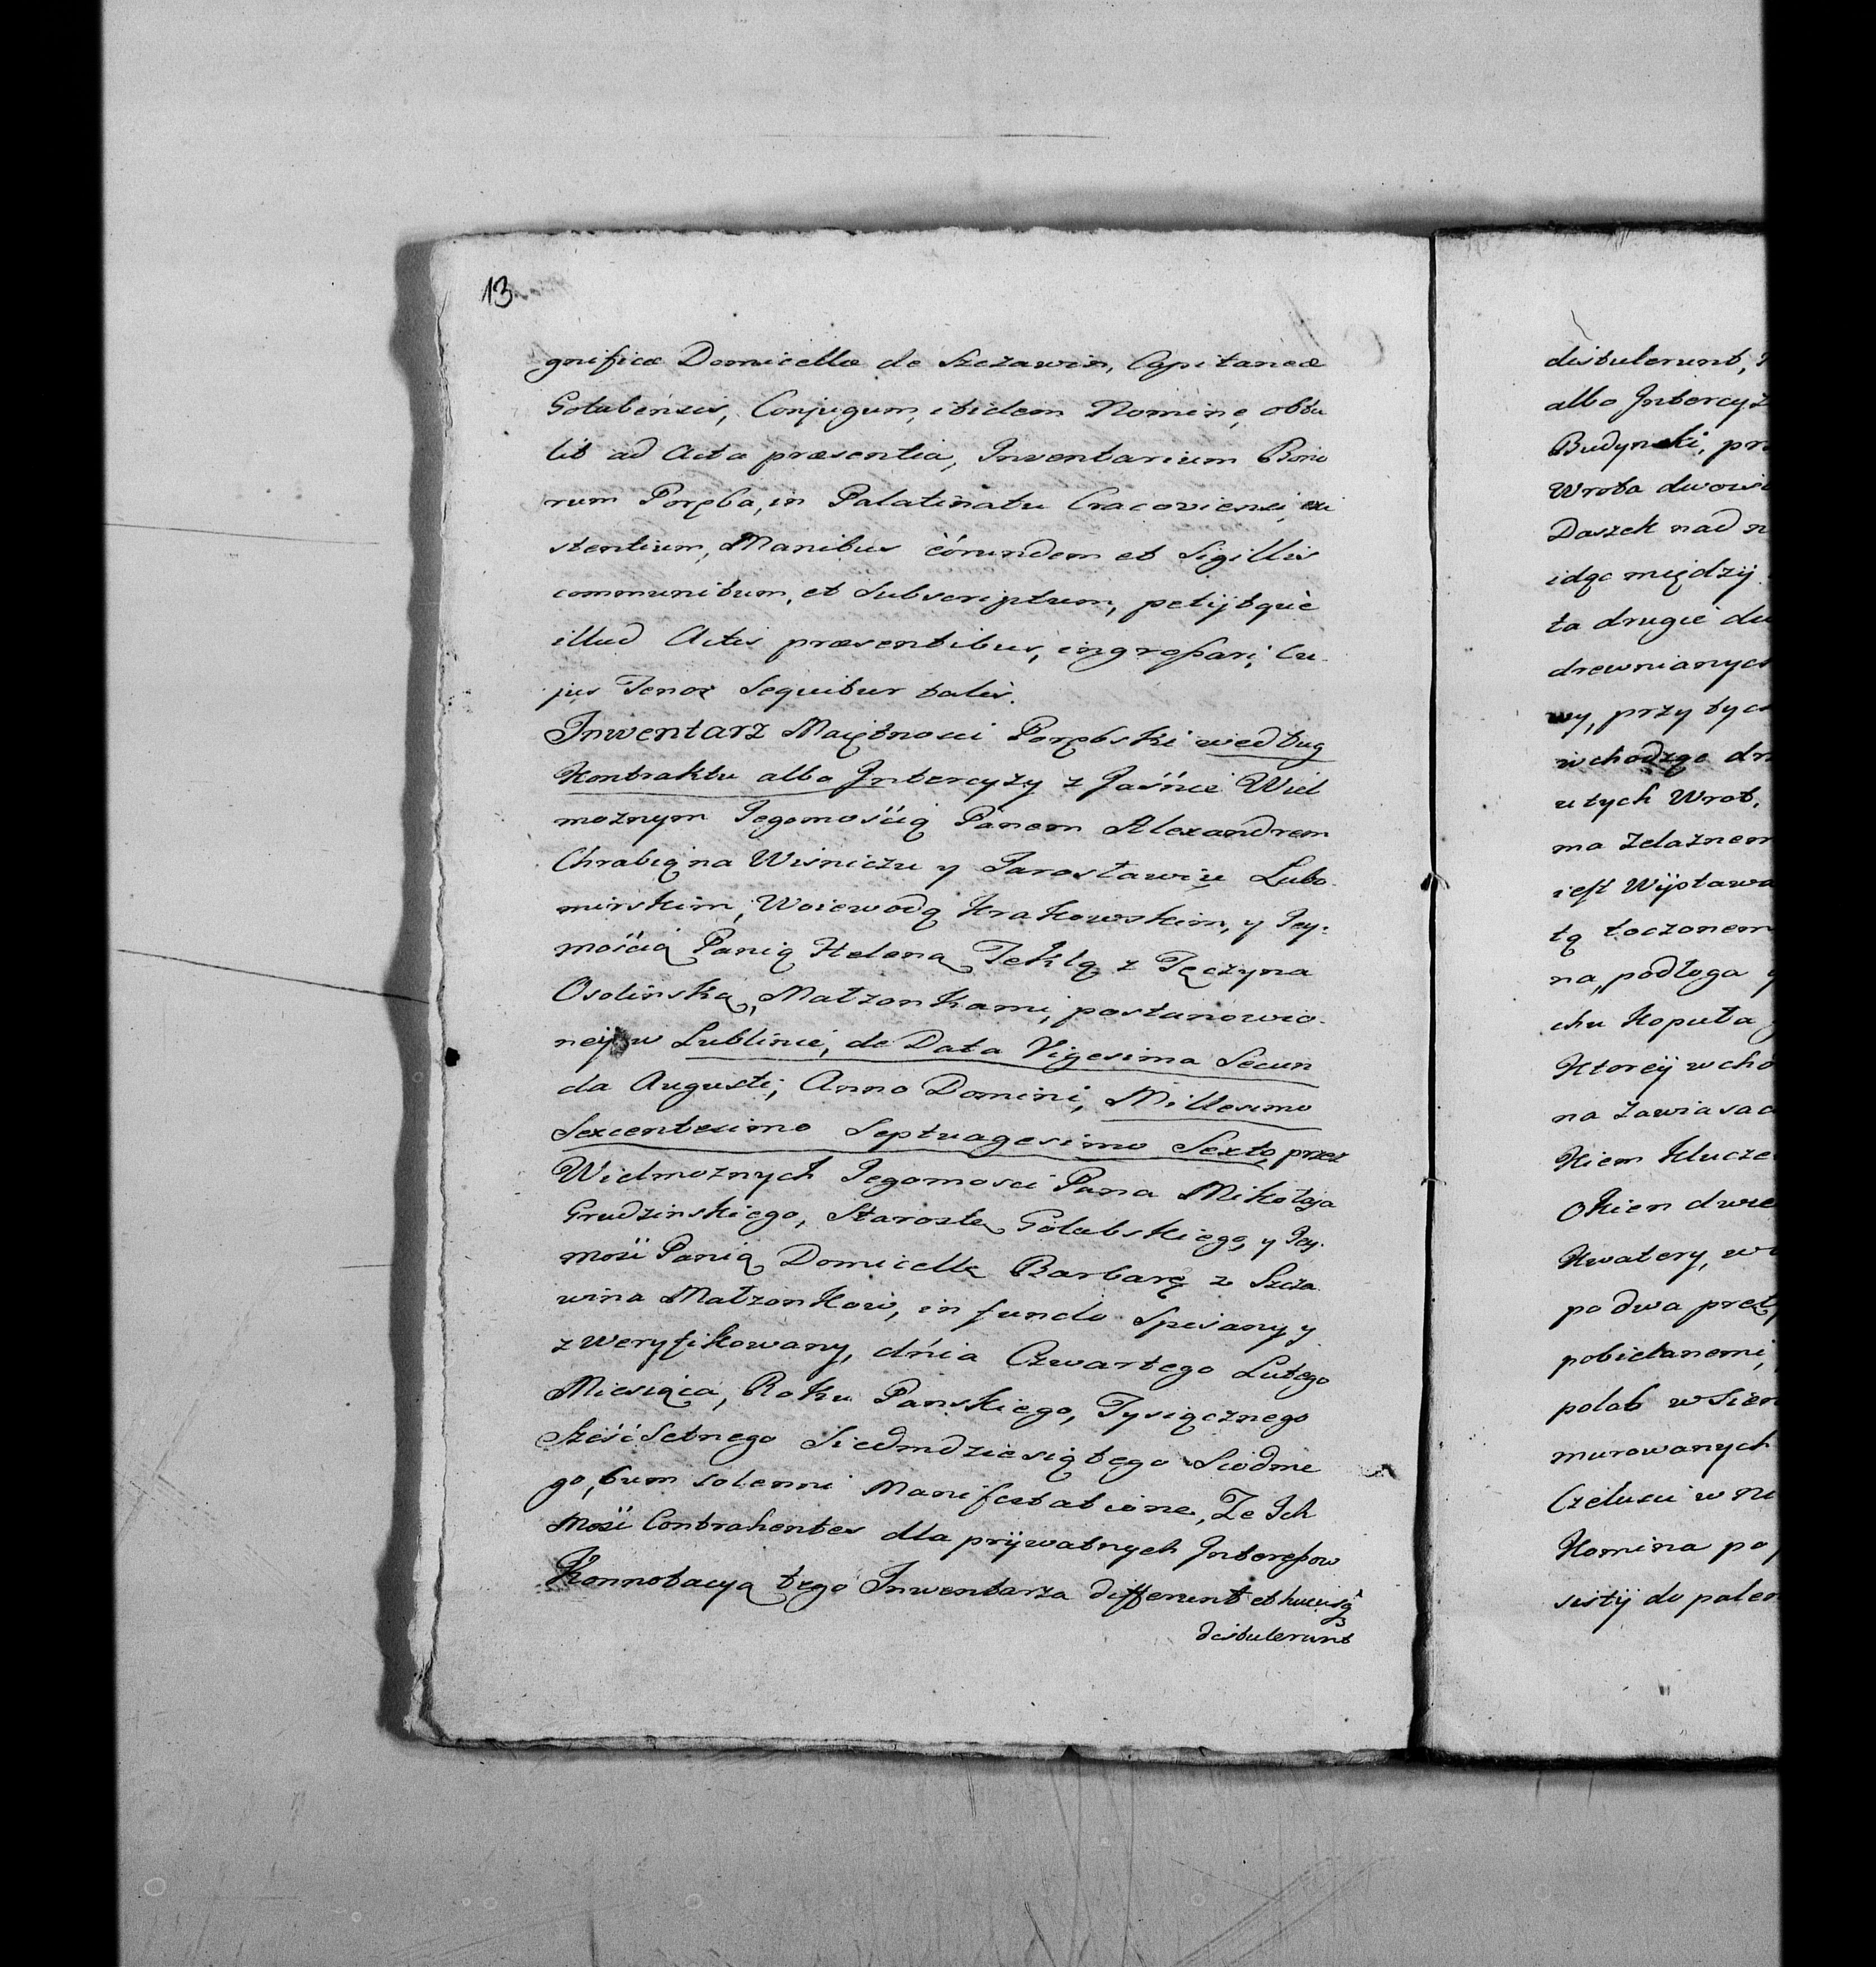 13
gnificæ Domicellæ de Szczawin, Capitaneæ
Golubensis, Conjugum, itidem Nomine, obtu
lit ad Acta præsentia, Inventarium Bono
rum Poręba, in Palatinatu Cracoviensi, exi
stentium, Manibus eórundem et Sigillis
communitum, et Subscriptum, petijtquè
illud Actis præsentibus, ingroßari, Cu-
jus Tenor Sequitur talis.
Inwentarz Maiętnosci Porębski według
Kontraktu albo Intercyzy z Jaśnie Wiel
możnym Jegomością Panem Alexandrem
Chrabią na Wiśniczu y Jarosławiu Lubo-
mirskim, Woiewodą Krakowskim, y Jey-
mością Panią Heleną Teklą z Tęczyna
Osolinską, Małzonkami, postanowio-
neij w Lublinie, de Data Vigesima Secun
da Augusti, Anno Domini, Millesimo
Sexcentesimo Septuagesimo Sexto, przez
Wielmoznych Jegomosci Pana Mikołaja
Grudzinskiego, Starostę Golubskiego, y Jey-
mość Panią Domicellę Barbarę z Szcza
wina Małzonkow, in fundo Spisany y
zweryfikowany, dńia Czwartego Lutego
Miesiąca, Roku Panskiego, Tysiącznego
Sześćsetnego Siedmdziesiątego Siodme
go, Cum solenni Manifestatione, Ze Ich
Mość Contrahentes dla prijwatnych Intereßow
Konnotacyą tego Inwentarza differunt et hucusq
distulerunt
distulerunt,
albo Intercyz
Budynki, prz
Wrota dwoist
Daszek nad n
idąc międzij
ta drugie du
drewnianych
wy, przy tych
wchodząc dr
u tych Wrot,
ma Zelaznem
iest Wijstawa
tą toczonem
na, podłoga
chu Koputa
Ktoreij wcho
na Zawiasac
Kiem Klucze
Okien dwie
Kwatery, w
po dwa pręt
pobielanemi,
polab w Sien
murowanych
Czelusci w ni
Komina po
sistij do palen